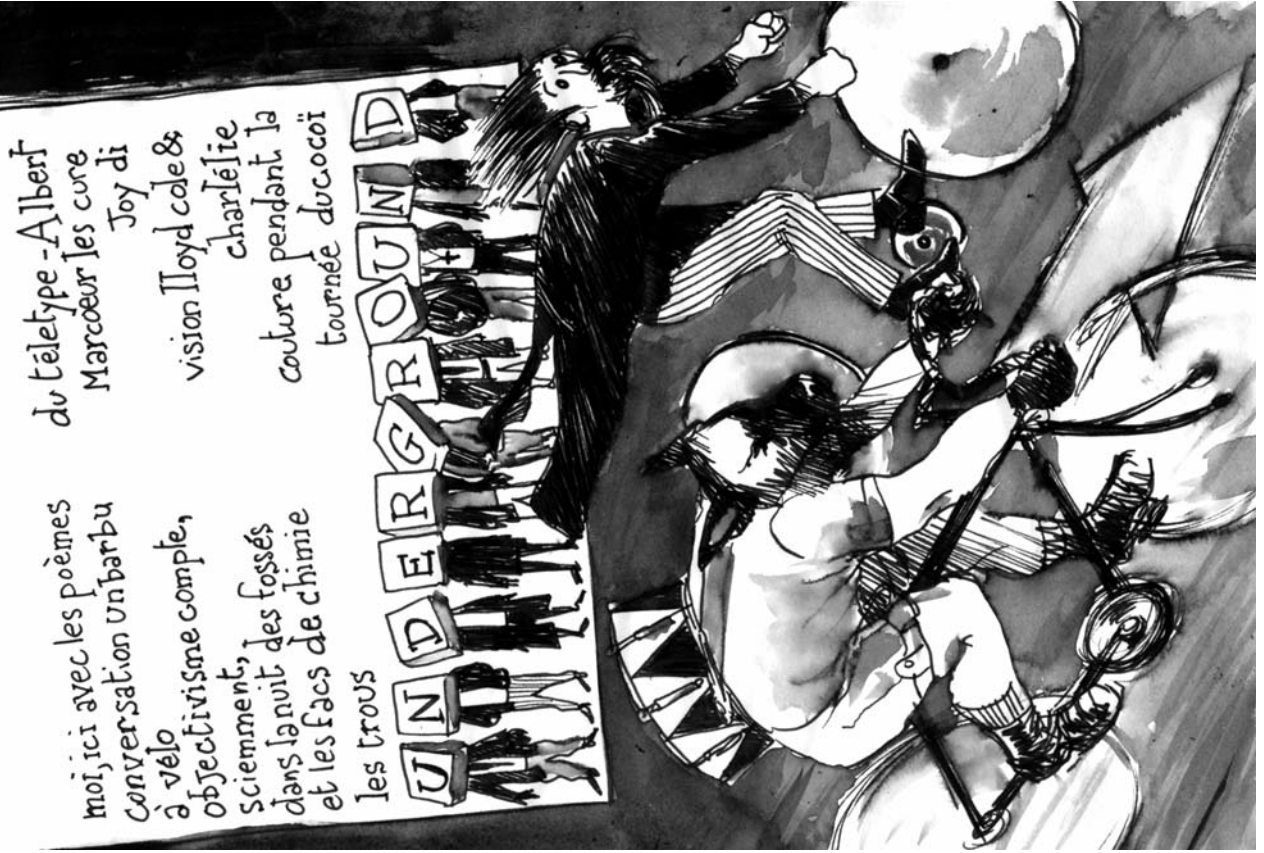 moi, ici avec les poèmes
conversation un barbu
à vélo
objectivisme compte,
sciemment,
dans la nuit des fossés
et les facs de chimie
les trous
du télétype-Albert
Marcoeur les cure
Joy di
vision lloyd cole &
charlélie
couture pendant la
tournée ducocoï
UNDERGROUND